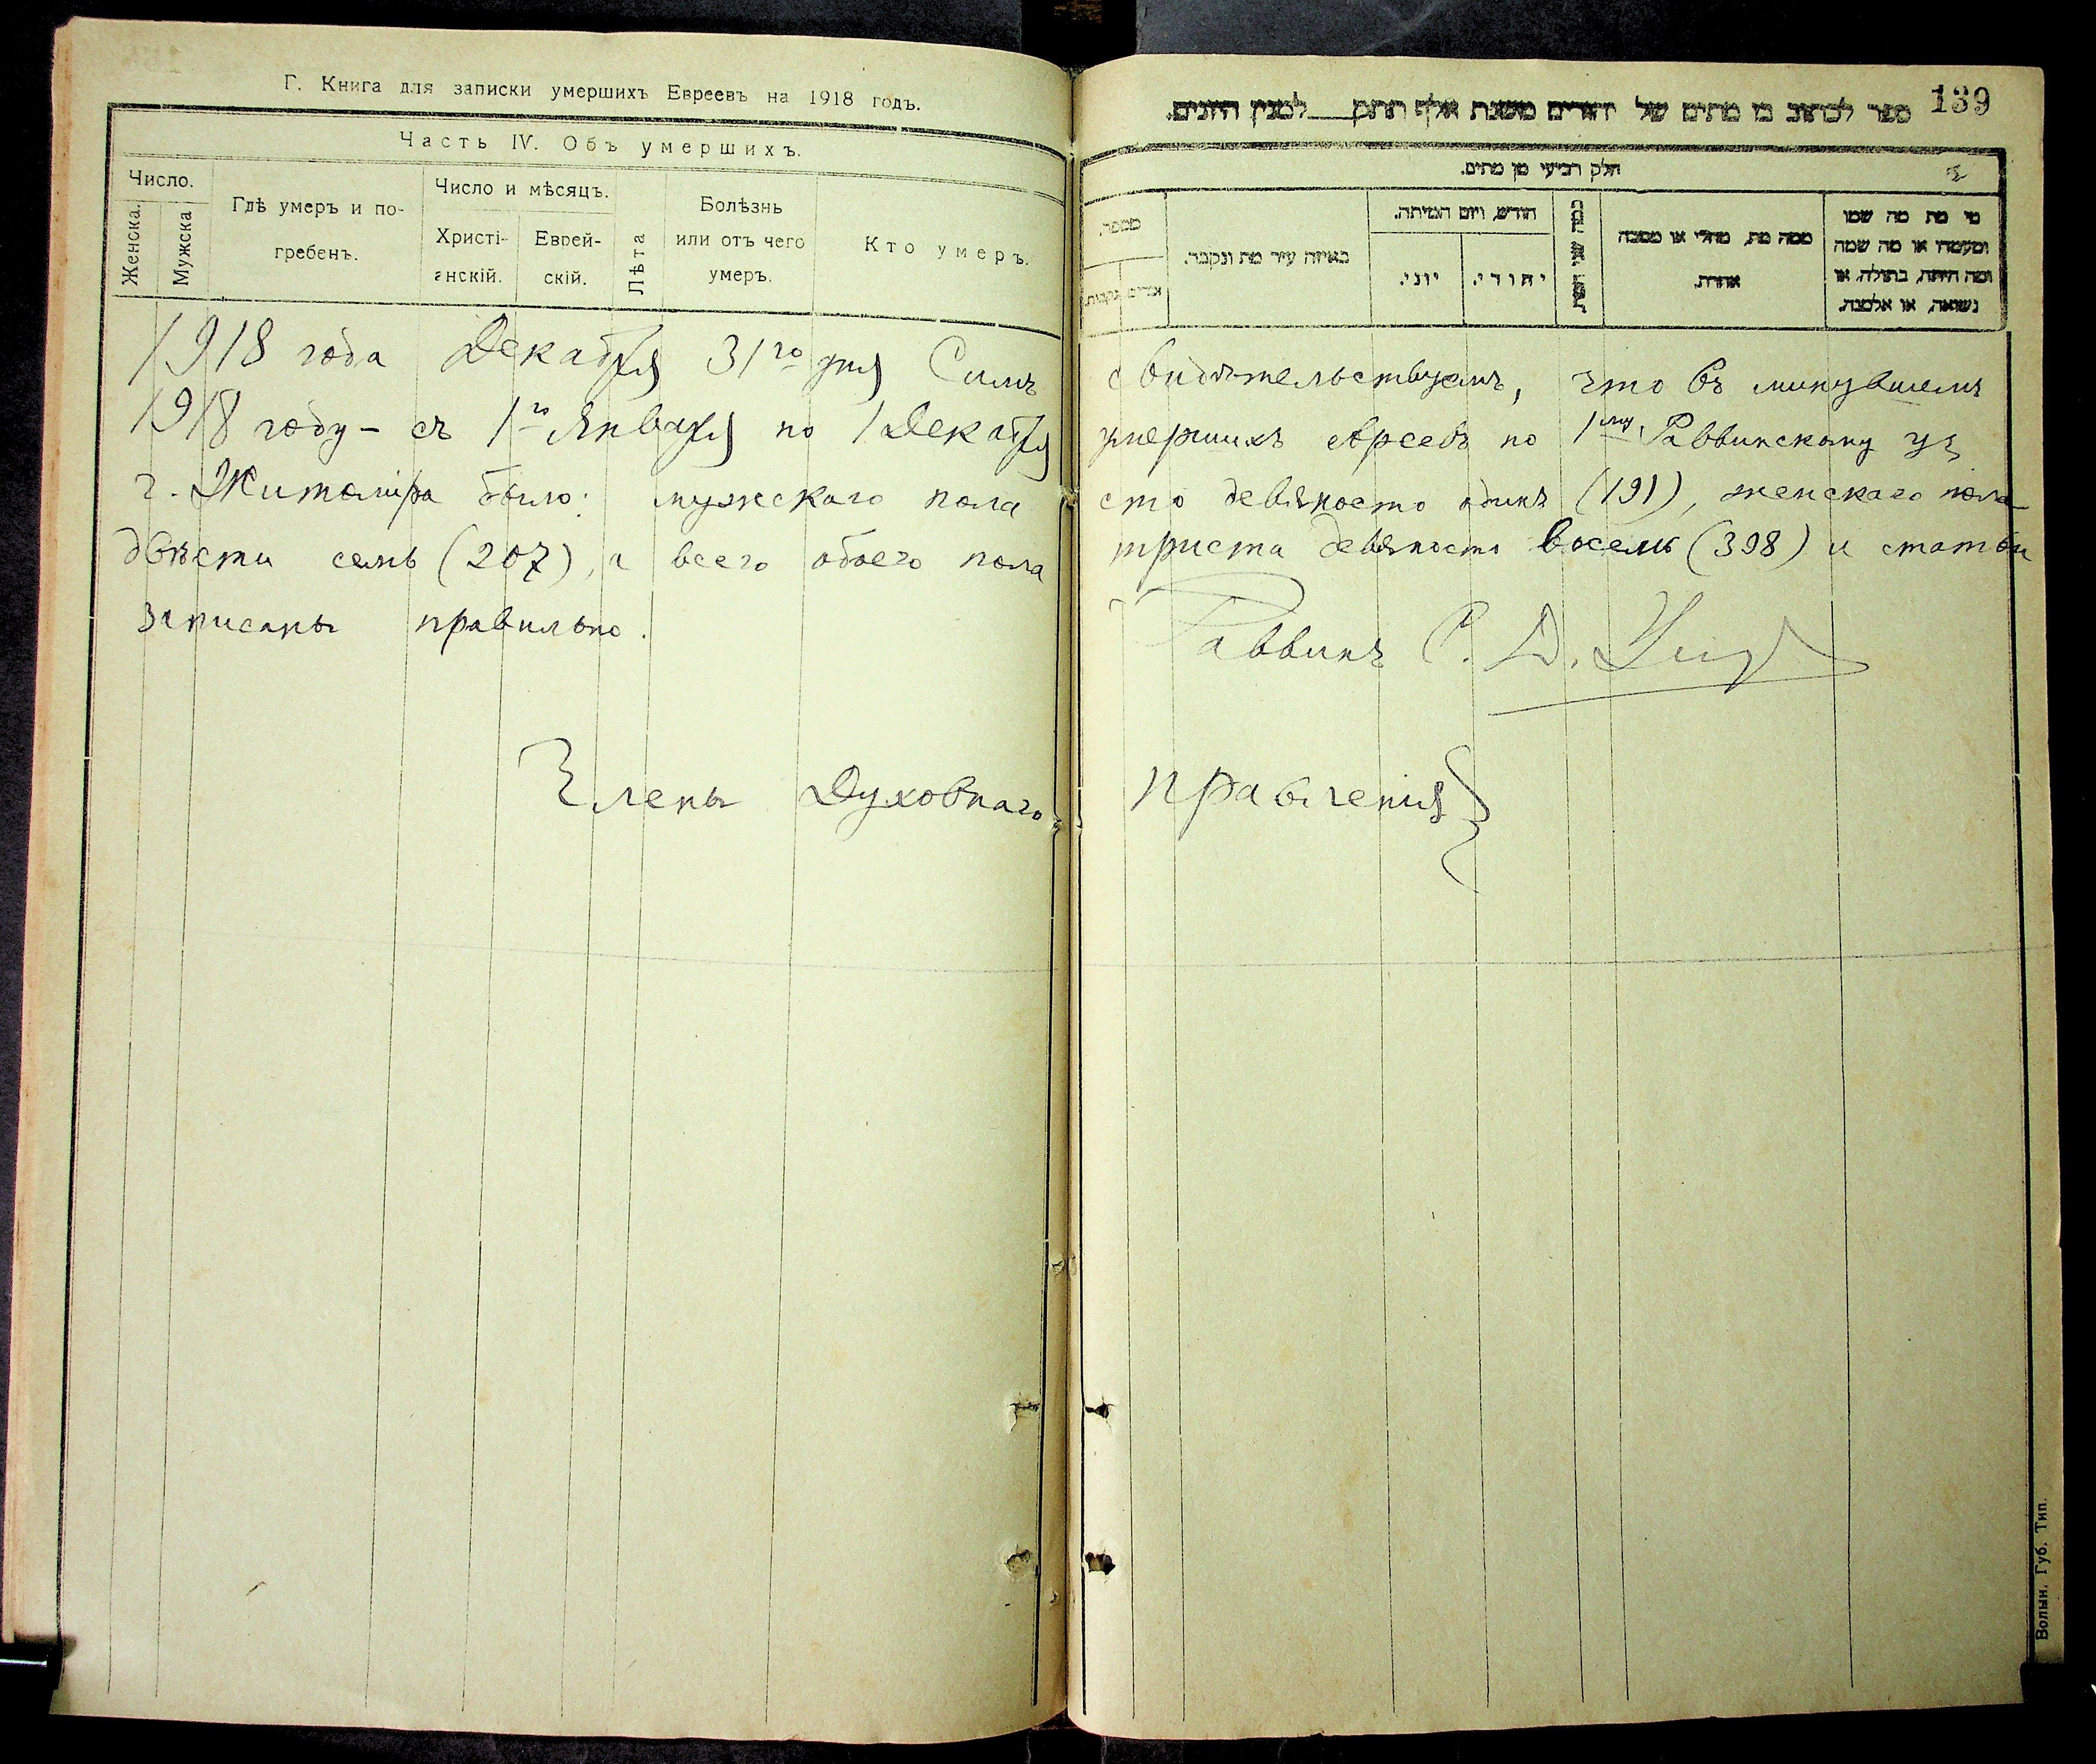 Г. Книга для записки умершихъ Евреевъ на 1918 годъ.
Часть IV. Объ умершихъ.
Число.
Женска.
Мужска
Гдѣ умеръ и по-
гребенъ.
Число и мѣсяцъ.
Христі-
анскій.
Еврей-
скій.
Лѣта
Болѣзнь
или отъ чего
умеръ.
Кто умеръ.
139
ספר לכתוב בו מתים של יהודים משנת אלף תתק למנין היונים.
חלק רביעי מן מתים.
מספר.
באיזה עיר מת ונקבר.
חודש, ויום המיתה.
יוני.
יהודי.
ממה מת, מחלי או מסבה
אחרת.
מי מת מה שמו
ומעמדו או מה שמה
ומה היתה, בתולה, או
נשואה, או אלמנה.
1918 года Декабря 31го дня Симъ свидѣтельствуемъ, что въ минувшемъ
1918 году - съ 1го Января по 1 Декабря умершихъ евреевъ по 1му Раввинскому уч
г. Житоміра было: мужского пола сто девяносто одинъ (191), женскаго пола
двѣсти семь (207), а всего обоего пола триста девяносто восемь (398) и статьи
записаны правильно.
Раввинъ С. Д.
Члены Духовнаго правленія
Волын. Губ. Тип.